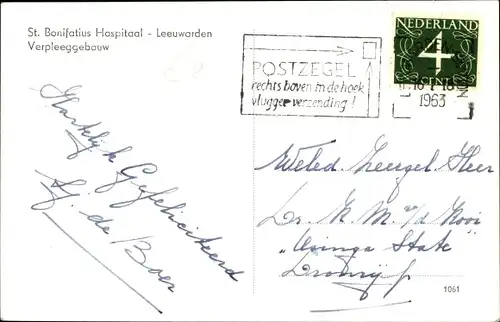 St. Bonifatius Hospitaal - Leeuwarden
Verpleeggebouw
NEDERLAND
4
CENT
POSTZEGEL
rechts boven in de hoek
vlugger verzending!
1963
Hartelijk Gefeliciteerd
de Boer
Weled. Zeergel. Heer
Dr. K. M. v/d Kooi
"Osinga State"
Dronrijp
1061